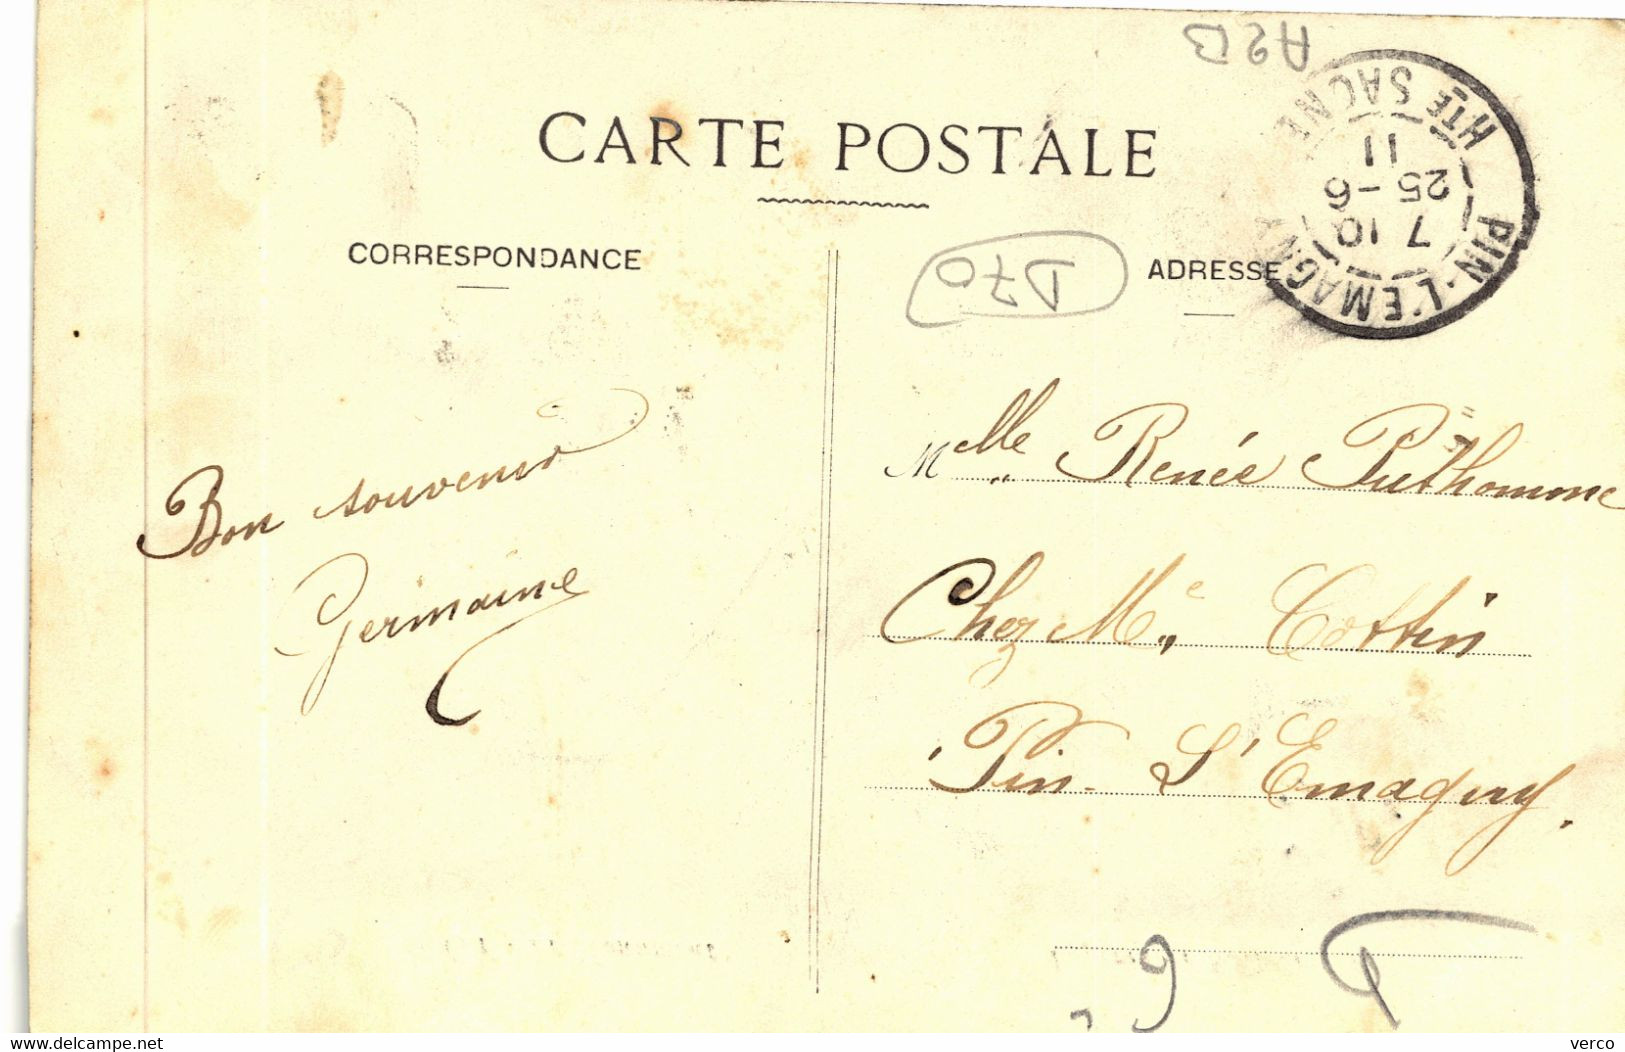 A2B
CARTE POSTALE
CORRESPONDANCE
ADRESSE
D70
PIN-L'EMAGNY
HTE SAONE
7 10
25 - 6
11
Bon souvenir
Germaine
Melle Renée Prethomme
Chez Me Cottin
Pin-L'Emagny.
verco